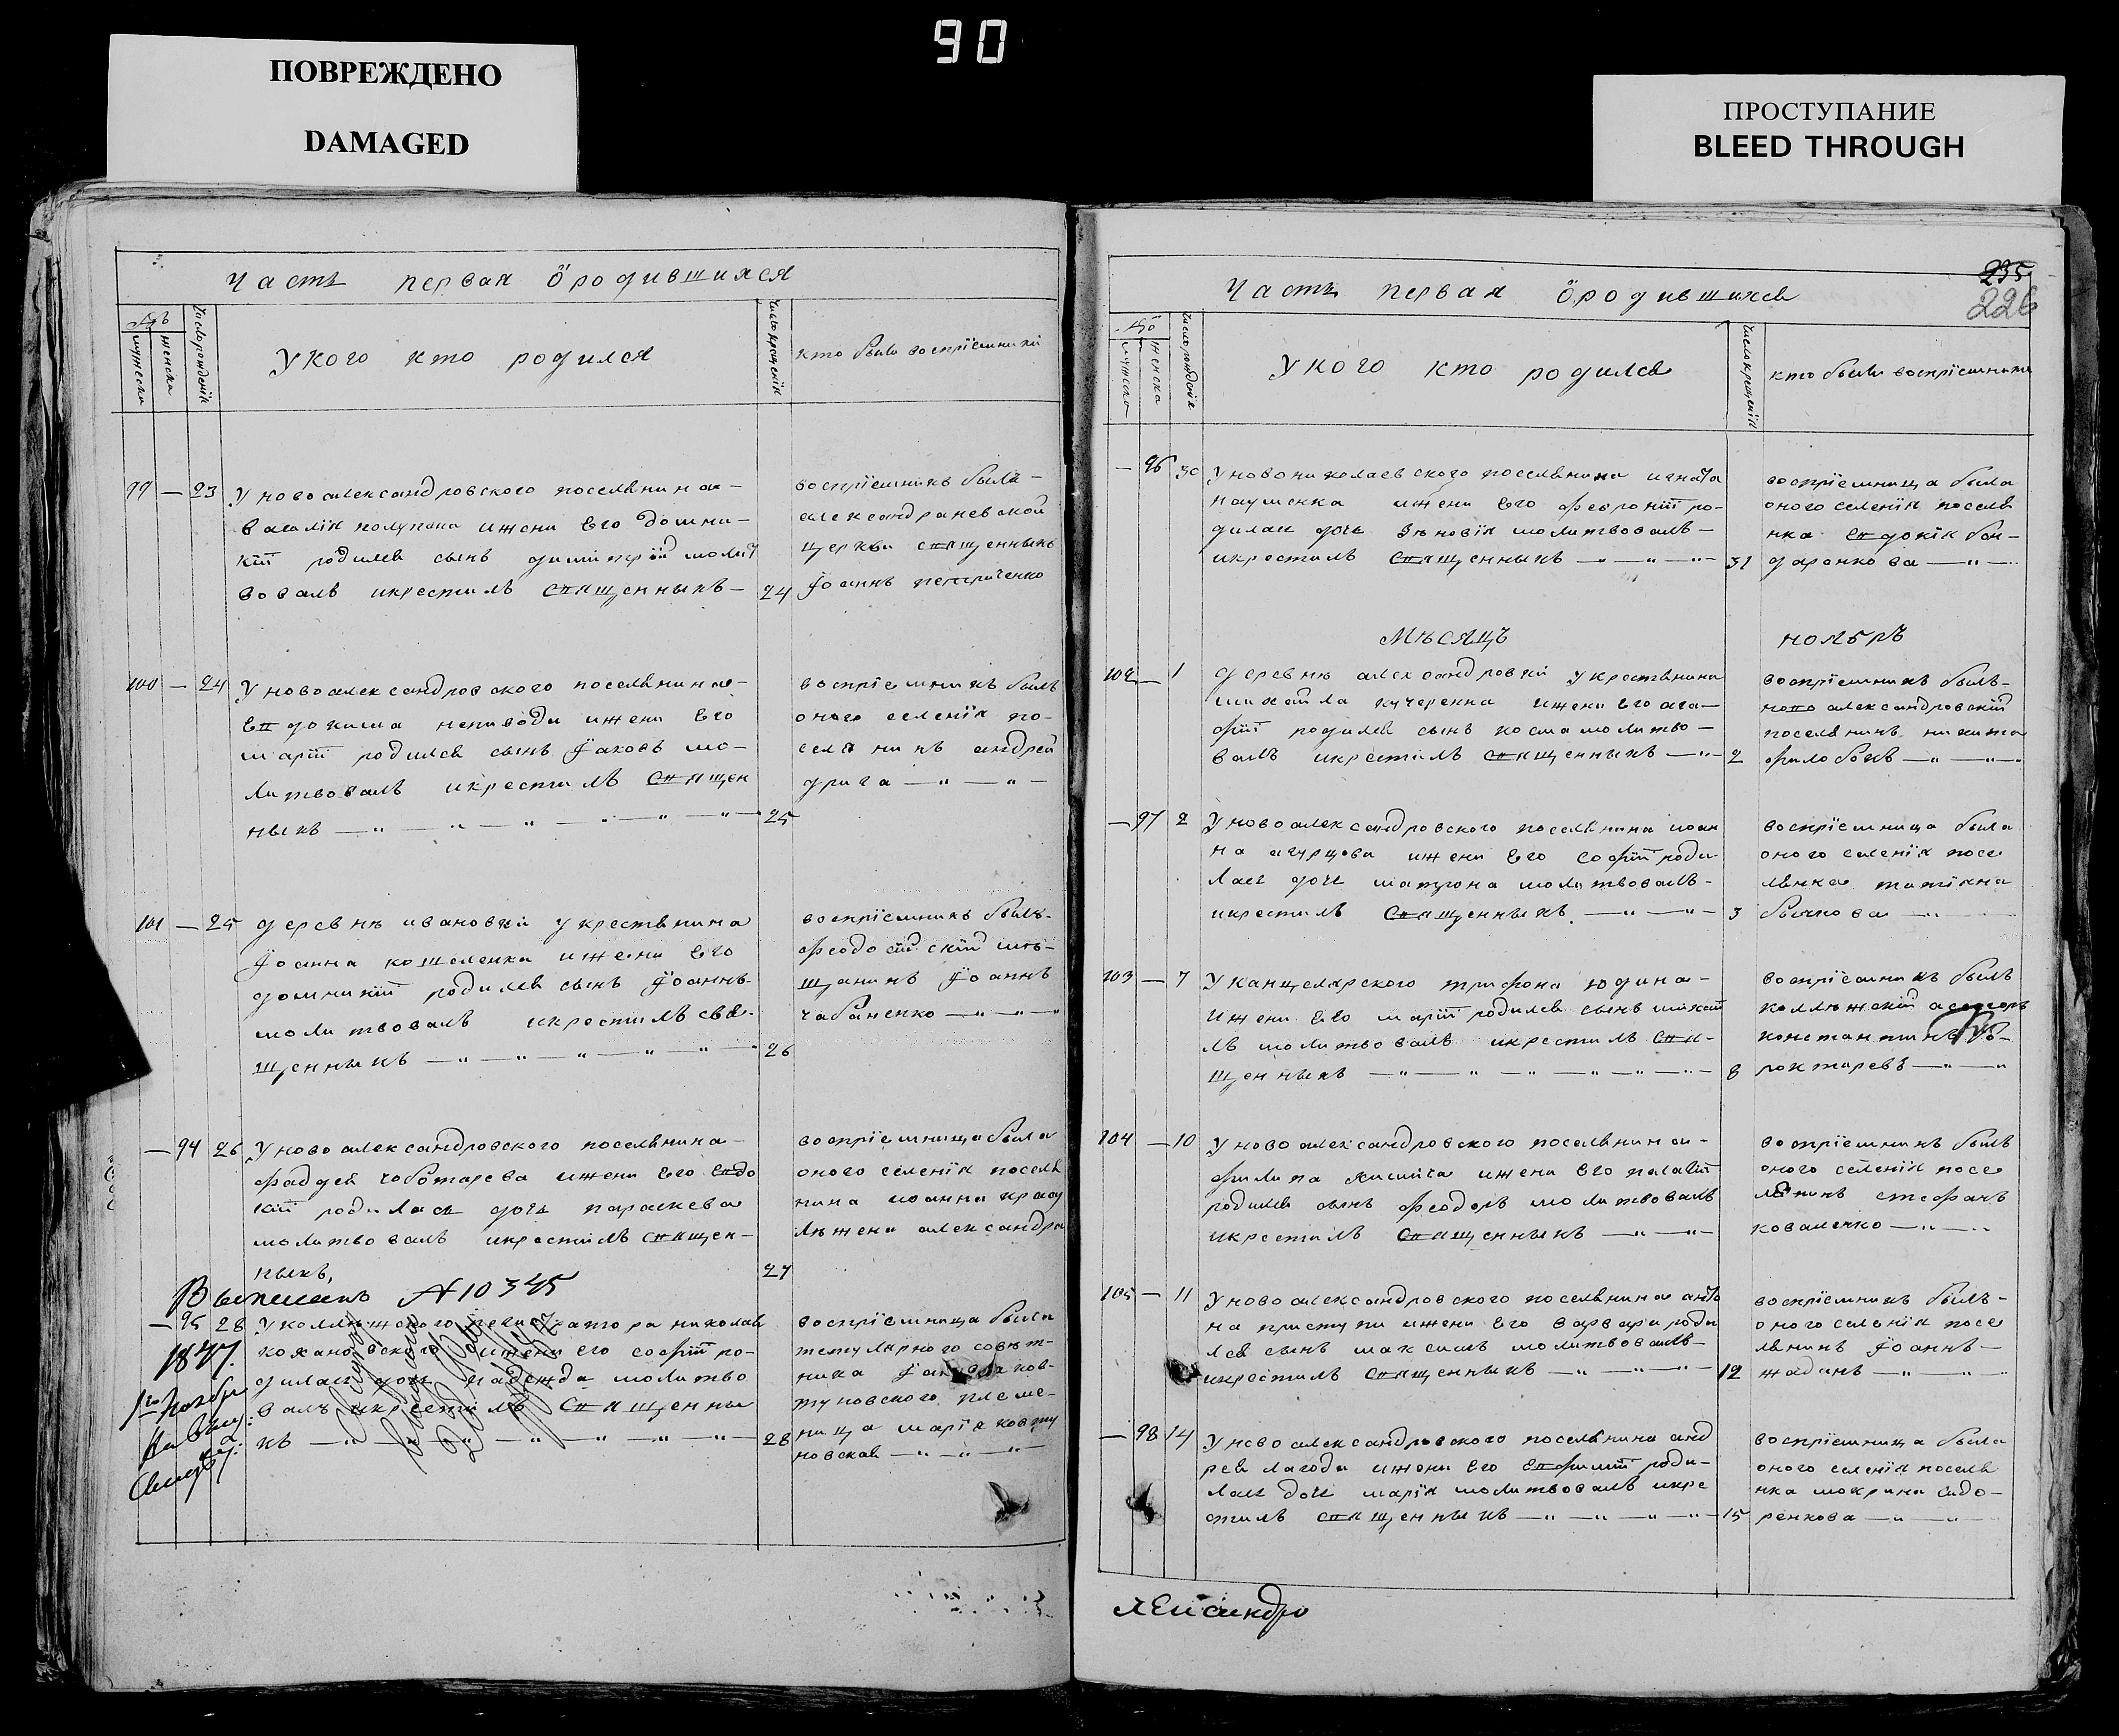 90
ПОВРЕЖДЕНО
DAMAGED
ПРОСТУПАНИЕ
BLEED THROUGH
Часть первая ö родившихся
мужеска
женска
число рождения
У кого кто родился
число крещенія
кто были воспріемники
99 — 23 У новоалександровского поселянина —
полупана и жены его домни —
кіи родился сынъ димитерій молит
вовалъ и крестилъ священникъ — 24
воспріемникъ былъ —
церкви священникъ
Іоаннъ
100 — 24 У новоалександровского поселянина —
Евдокима неписоди и жены его
маріи родился сынъ Іаковъ мо —
литвовалъ и крестилъ священ
никъ — 25
воспріемникъ былъ
оного селенія по —
селянинъ андрей
дрига
101 — 25 деревни ивановки у крестянина
Іоанна кошеленка и жены его
домникіи родился сынъ Іоаннъ
молитвовалъ и крестилъ свя —
щенникъ — 26
воспріемникъ былъ —
феодосійскій мѣ —
щанинъ Іоаннъ
чабаненко
— 94 26 У новоалександровского поселянина —
фадея чоботарева и жены его Евдо
кіи родилась дочь параскева
молитвовалъ и крестилъ священ —
никъ, 27
воспріемница была
оного селенія поселя
нина иоанна
жена александра
Выписанъ № 10345
— 95 28 У коллежского регистратора николая
кохановского и жены его софіи ро —
дилась дочь надежда молитво
валъ и крестилъ священни
къ — 28
воспріемница была
титулярного совѣт —
ника
племе —
ница марія ковту
новская
1877.
ноября
235
226
Часть первая ö родившихся
мужеска
женска
число рождения
У кого кто родился
число крещенія
кто были воспріемники
— 96 30 У новониколаевского поселянина игната
паушенка и жены его февроніи ро —
дилась дочь Зѣновія молитвовалъ —
и крестилъ священникъ — 31
воспріемница была
оного селенія поселя
нка Евдокія бон —
даренкова
Мѣсяцъ ноябръ
102 — 1 деревнѣ александровки у крестянина
михаила кучеренка и жены его ага —
фіи родился сынъ косма молитво —
валъ и крестилъ священникъ — 2
воспріемникъ былъ —
новоалександровскій
поселянинъ никита
— 97 2 У новоалександровского поселянина иоан
на агурцова и жены его софіи роди —
лась дочь матрона молитвовалъ —
и крестилъ священникъ — 3
воспріемница была
оного селенія посе
лянка татіяна
бычкова
103 — 7 У канцелярского трифона юдина —
и жены его маріи родился сынъ михаи
лъ молитвовалъ и крестилъ свя —
щенникъ — 8
воспріемникъ былъ
коллѣжскій асесоръ
константинъ
104 — 10 У новоалександровского поселянина —
филипа и жены его пелагіи
родился сынъ феодоръ молитвовалъ
и крестилъ священникъ
воспріемникъ былъ
оного селенія посе
лянинъ стефанъ
коваленко
105 — 11 У новоалександровского поселянина анто
на приступи и жены его варвари роди
лся сынъ максимъ молитвовалъ —
и крестилъ священникъ — 12
воспріемникъ былъ —
оного селенія посе
лянинъ Іоаннъ —
жаданъ
— 98 14 У новоалександровского поселянина анд
рея лагоди и жены его Евфиміи роди —
лась дочь марія молитвовалъ и кре
стилъ священникъ — 15
воспріемница была
оного селенія поселя
нка мокрина сидо —
ренкова